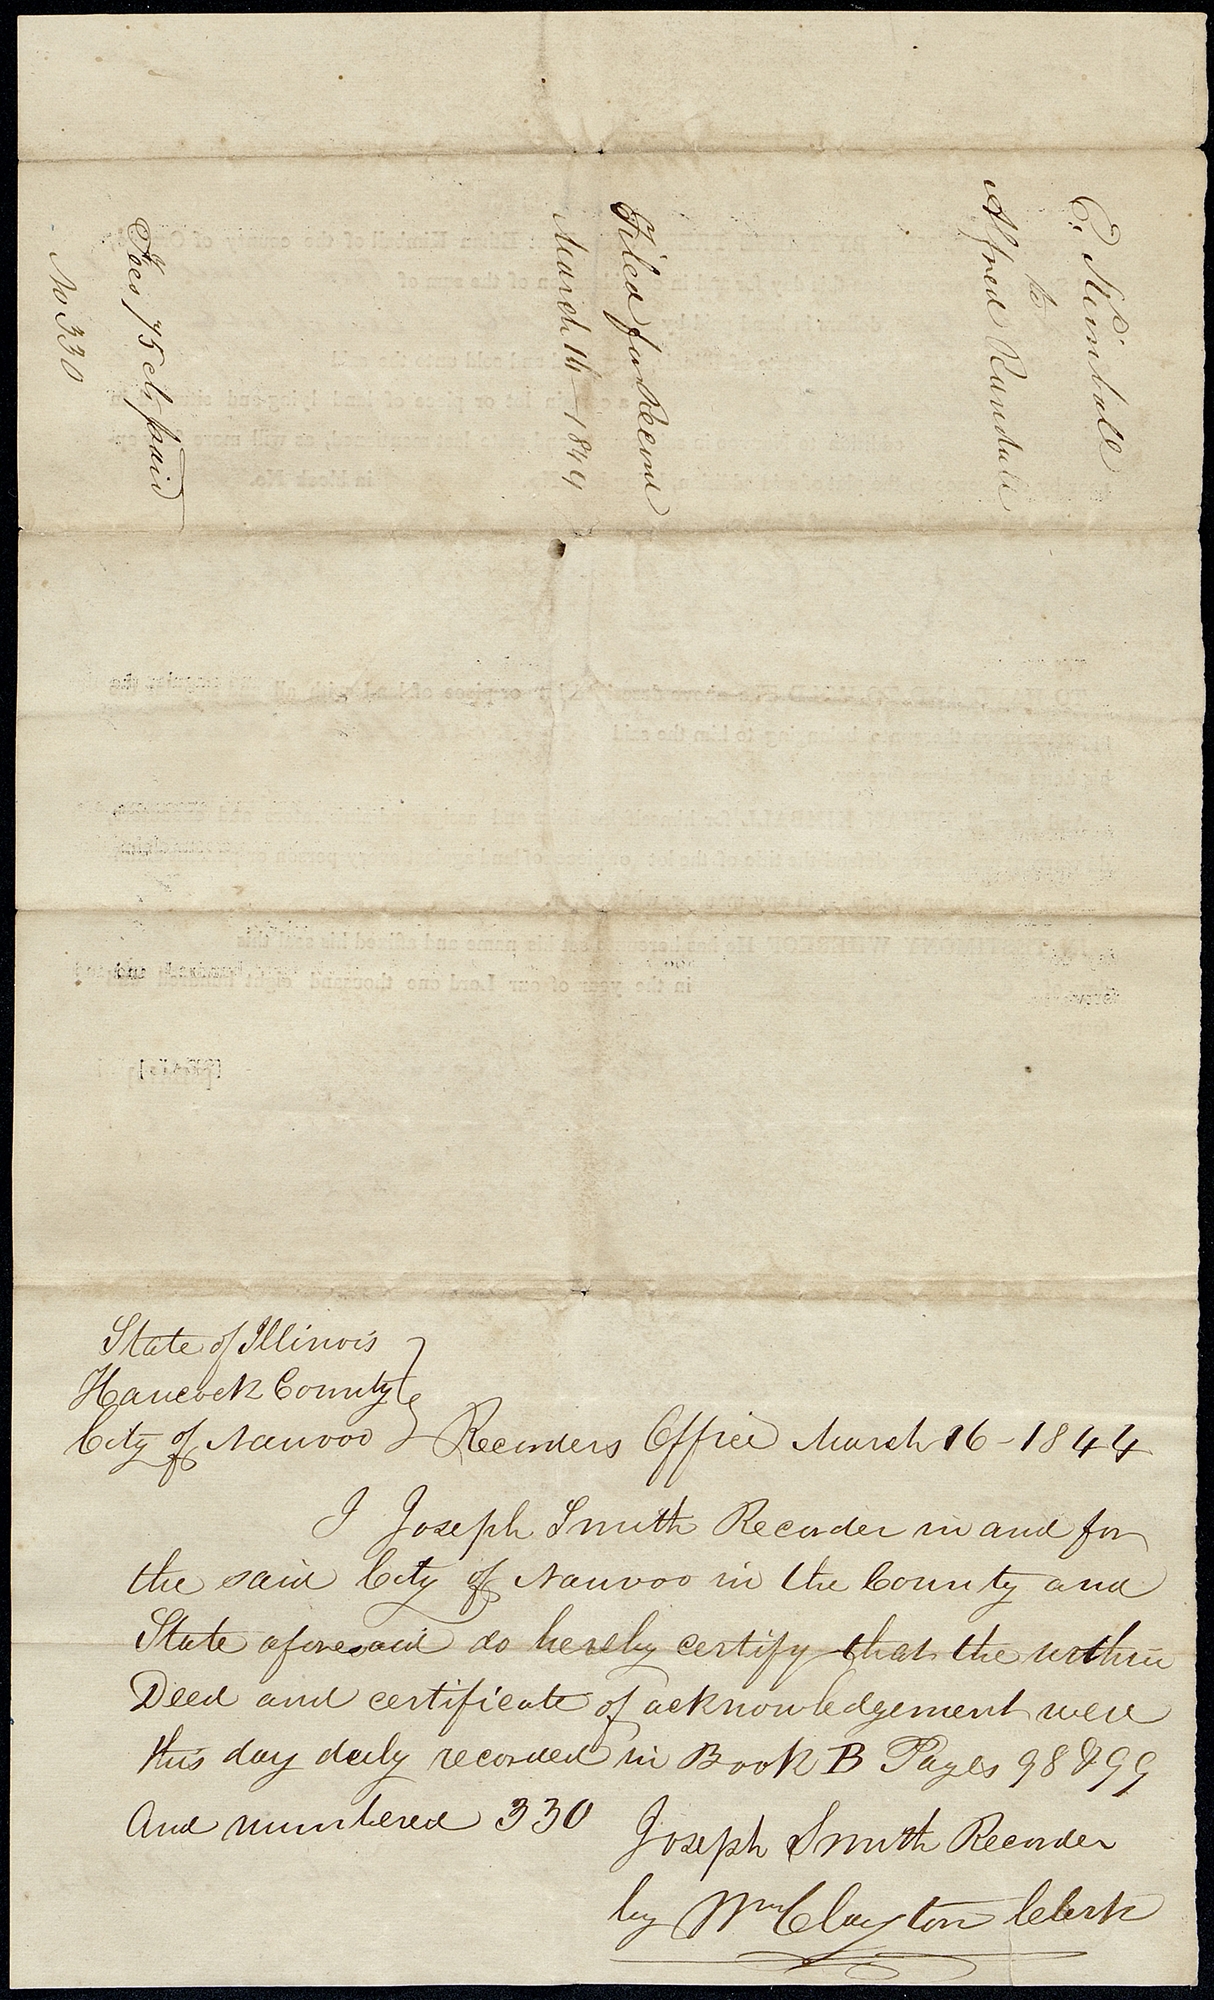 E. Kimball
to
Alfred Randall
Filed for Record
March 16 - 1844
Fees 75 cts paid
No 330
State of Illinois
Hancock County
City of Nauvoo } Recorders Office March 16 - 1844
I Joseph Smith Recorder in and for
the said City of Nauvoo in the County and
State aforesaid do hereby certify that the within
Deed and certificate of acknowledgement were
this day duly recorded in Book B Pages 98 & 99
and numbered 330
Joseph Smith Recorder
by Wm Clayton Clerk